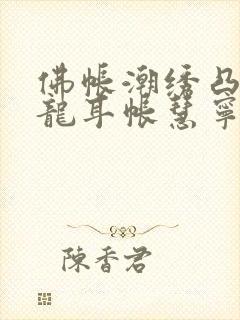 佛帐潮绣凸
龍耳帐慧寧
陳香君